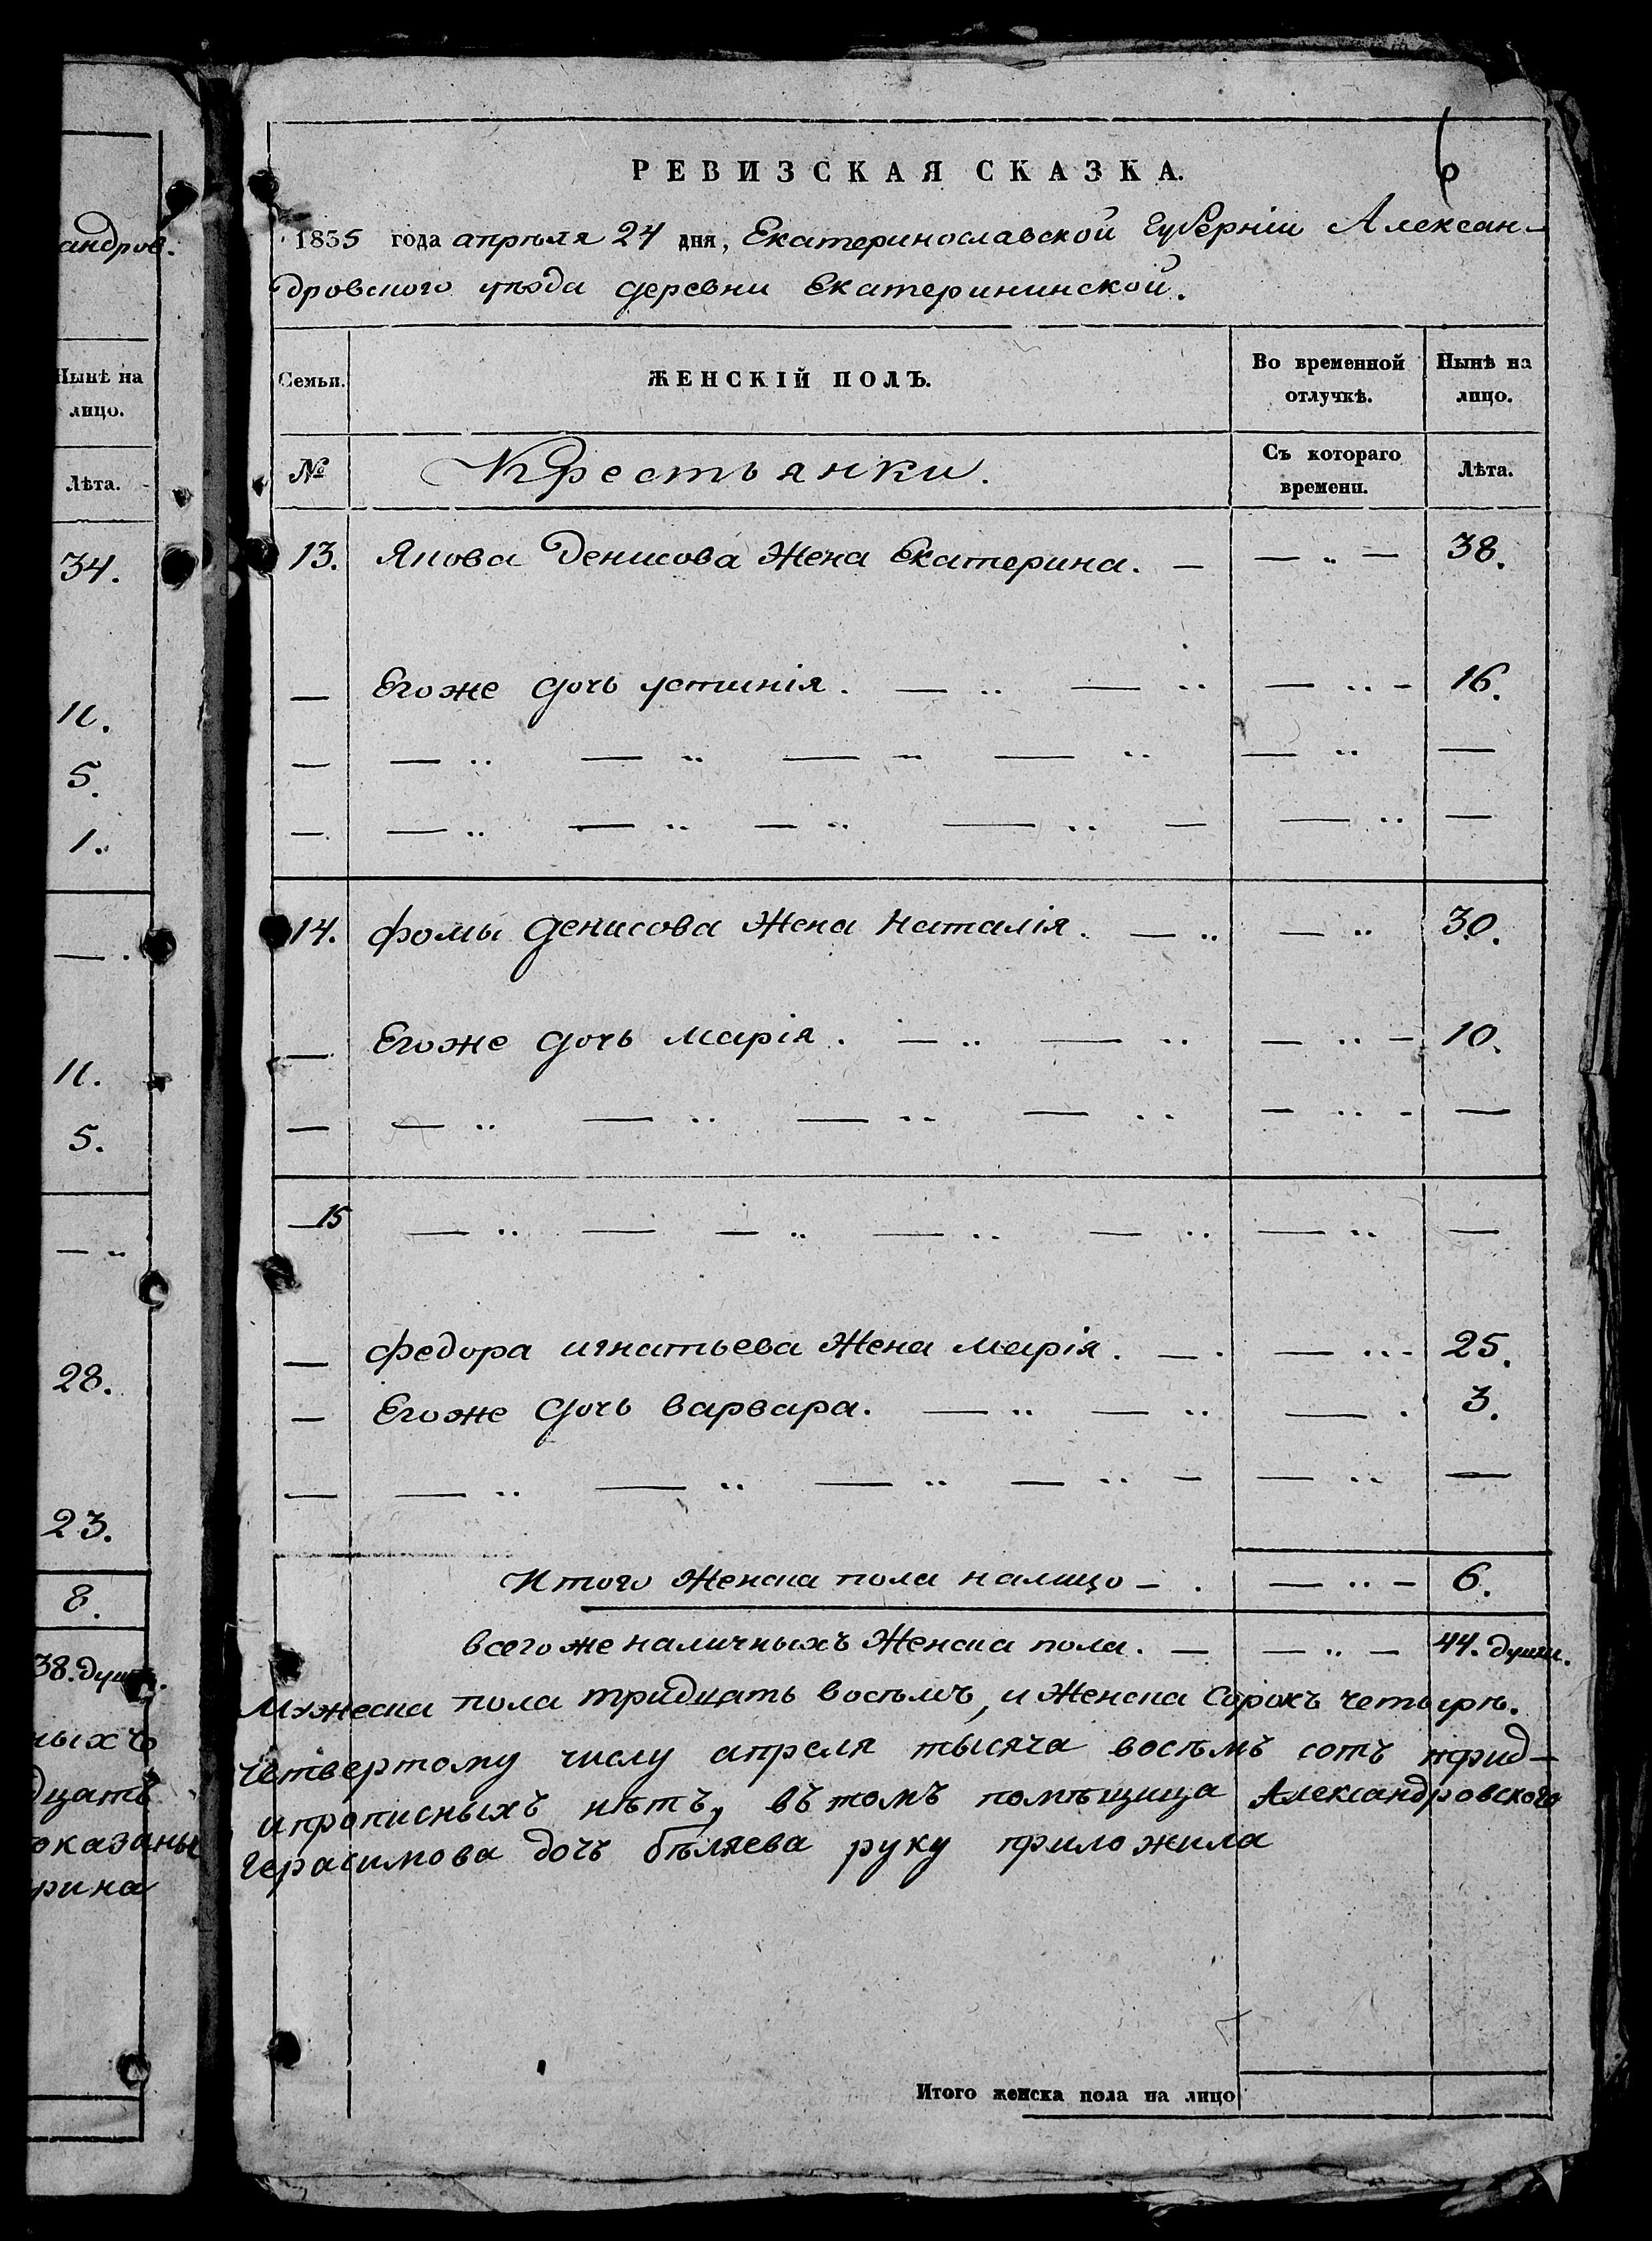 андров.
Нынѣ на
лицо.
Лѣта.
34.
11.
5.
1.
11.
5.
28.
23.
8.
38. душ
ныхъ
дцать
оказаны
рина
6
РЕВИЗСКАЯ СКАЗКА.
1835 года апрѣля 24 дня, Екатеринославской Губерніи Алексан-
дровского уѣзда деревни Екатерининской.
Семьи. ЖЕНСКІЙ ПОЛЪ. Во временной отлучкѣ. Нынѣ на лицо.
№ Крестьянки. Съ котораго времени. Лѣта.
13. Якова Денисова Жена Екатерина. 38.
Егоже дочь устинія. 16.
14. фомы денисова Жена Наталія. 30.
Егоже дочь марія. 10.
15
федора игнатьева Жена марія. 25.
Егоже дочь варвара. 3.
Итого Женска пола налицо 6.
всегоже наличныхъ Женска пола. 44. души.
Мужеска пола тридцать восьмъ, и Женска Сорокъ четырѣ.
четвертому числу апреля тысяча восѣмъ сотъ трид-
ипрописныхъ нѣтъ, въ томъ помѣщица Александровского
Герасимова дочь бѣляева руку приложила
Итого женска пола на лицо